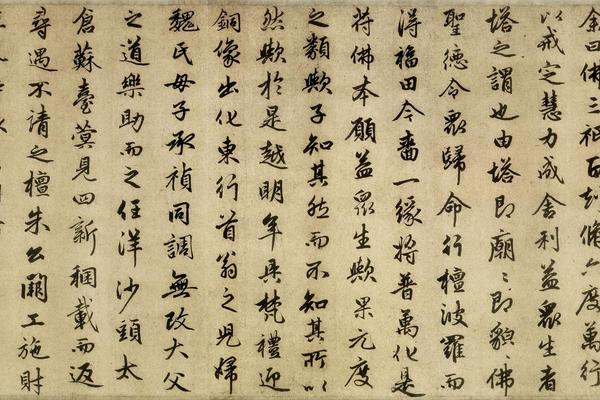 余曰佛三祇百劫脩六度萬行
以戒定慧力成舍利益眾生者
塔之謂也由塔即廟〻即貌〻佛
聖德令眾歸命行檀波羅而
得福田今啬一緣將普萬化是
符佛本願益眾生歟果元度
之類歟予知其然而不知其所以
然歟於是越明年具梵禮迎
銅像出化東行首翁之兒婦
魏氏母子承禎同調無改大父
之道樂助而之任洋沙頭太
倉蘇臺蓂見四新稛載而返
尋遇不請之檀朱公闢工施財